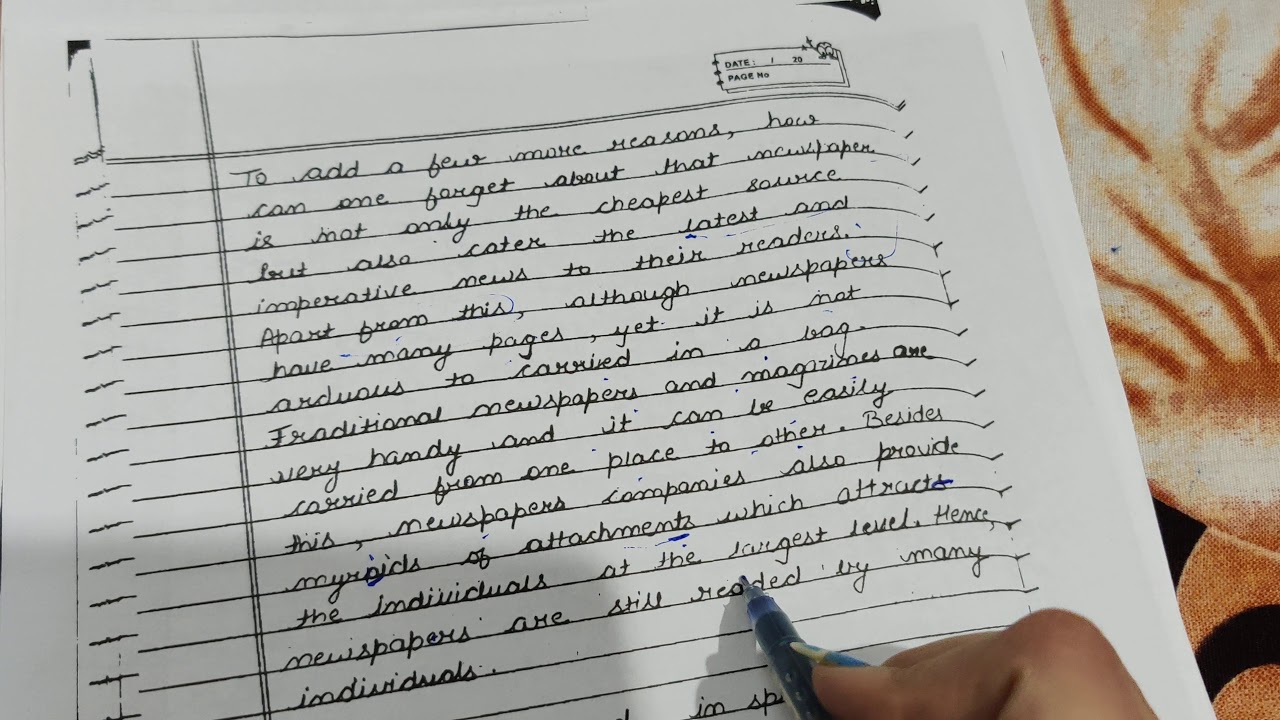 DATE: / 20
PAGE No
To add a few more reasons, how
can one forget about that newspaper
is not only the cheapest source
but also cater the latest and
imperative news to their readers.
Apart from this, although newspapers
have many pages, yet it is not
arduous to carried in a bag.
Traditional newspapers and magzines are
very handy and it can be easily
carried from one place to other. Besides
this, newspapers companies also provide
myroids of attachments which attracts
the individuals at the largest level. Hence,
newspapers are still readed by many
individuals.
in